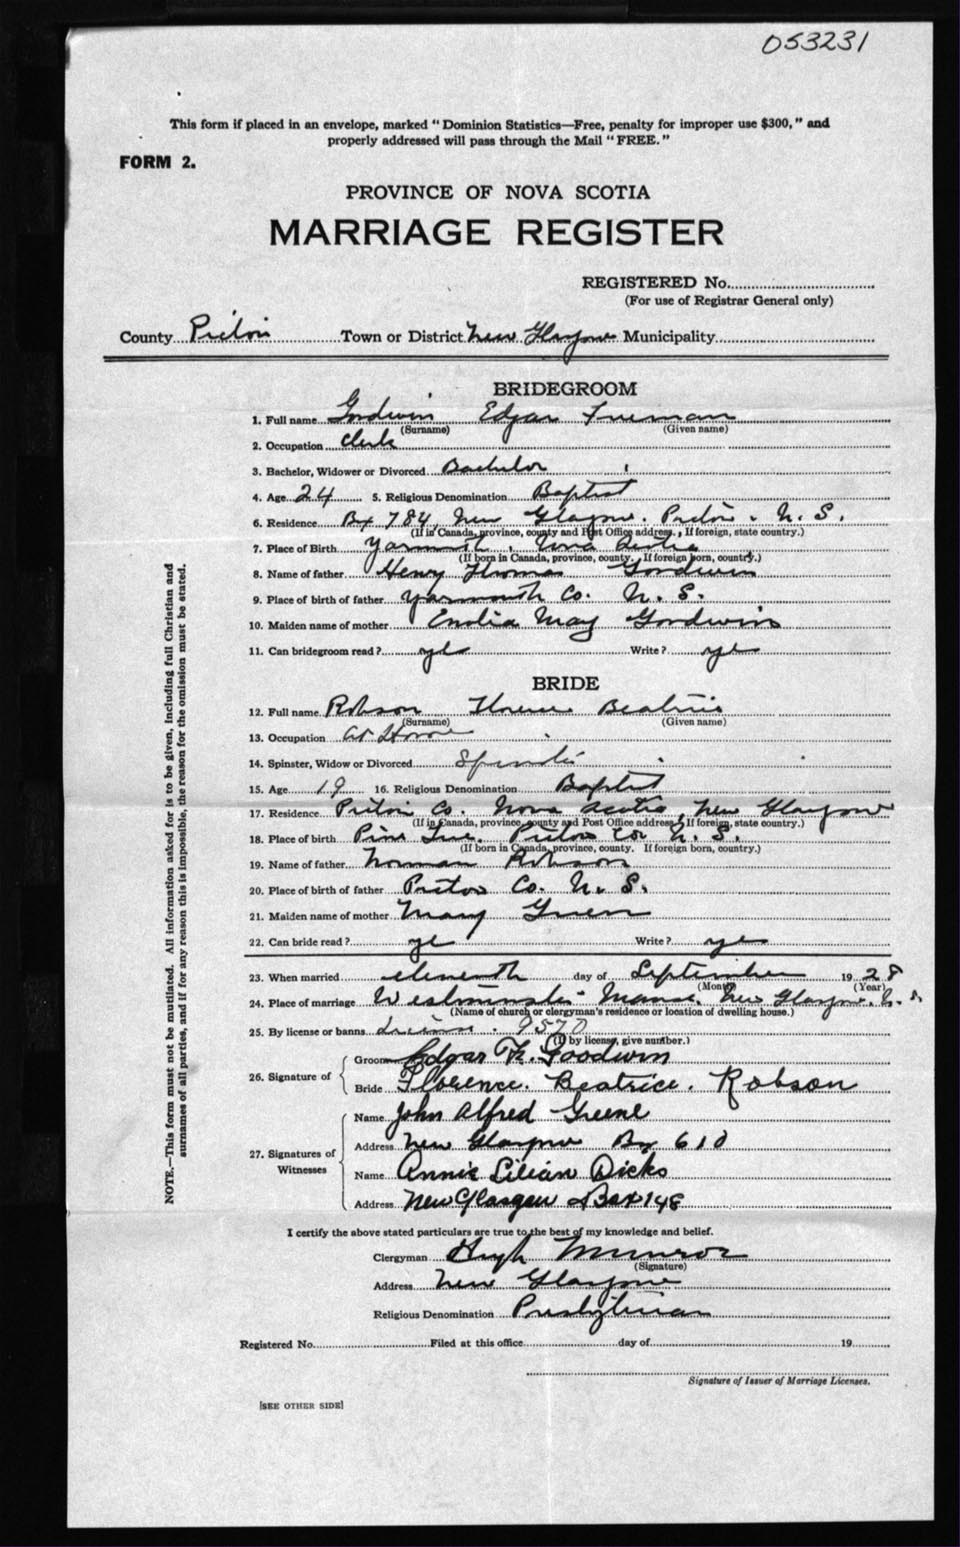 053231
This form if placed in an envelope, marked "Dominion Statistics—Free, penalty for improper use $300," and
properly addressed will pass through the Mail "FREE."
FORM 2.
PROVINCE OF NOVA SCOTIA
MARRIAGE REGISTER
REGISTERED No.
(For use of Registrar General only)
County Pictou Town or District New Glasgow Municipality
BRIDEGROOM
1. Full name Goodwin Edgar Freeman
(Surname) (Given name)
2. Occupation Clerk
3. Bachelor, Widower or Divorced Bachelor
4. Age 24 5. Religious Denomination Baptist
6. Residence Bx 784, New Glasgow. Pictou. N. S.
(If in Canada, province, county and Post Office address. If foreign, state country.)
7. Place of Birth Yarmouth, Nova Scotia
(If born in Canada, province, county. If foreign born, country.)
8. Name of father Henry Thomas Goodwin
9. Place of birth of father Yarmouth Co. N. S.
10. Maiden name of mother May Goodwin
11. Can bridegroom read? yes Write? yes
BRIDE
12. Full name Robson Florence Beatrice
(Surname) (Given name)
13. Occupation at Home
14. Spinster, Widow or Divorced Spinster
15. Age 19 16. Religious Denomination Baptist
17. Residence Pictou Co. Nova Scotia, New Glasgow
(If in Canada, province, county and Post Office address. If foreign, state country.)
18. Place of birth Pine Tree. Pictou Co. N. S.
(If born in Canada, province, county. If foreign born, country.)
19. Name of father Norman Robson
20. Place of birth of father Pictou Co. N. S.
21. Maiden name of mother Mary Green
22. Can bride read? yes Write? yes
23. When married eleventh day of September 1928
(Month) (Year)
24. Place of marriage Westminster Manse, New Glasgow, N. S.
(Name of church or clergyman's residence or location of dwelling house.)
25. By license or banns license. 9570
(If by license, give number.)
26. Signature of
Groom Edgar Fr. Goodwin
Bride Florence. Beatrice. Robson
27. Signatures of Witnesses
Name John Alfred Greene
Address New Glasgow Bx 610
Name Annie Lilian Dicks
Address New Glasgow Box 148
I certify the above stated particulars are true to the best of my knowledge and belief.
Clergyman Hugh Munroe
(Signature)
Address New Glasgow
Religious Denomination Presbyterian
Registered No. Filed at this office day of 19
Signature of Issuer of Marriage Licenses.
[SEE OTHER SIDE]
NOTE.—This form must not be mutilated. All information asked for is to be given, including full Christian and
surnames of all parties, and if for any reason this is impossible, the reason for the omission must be stated.